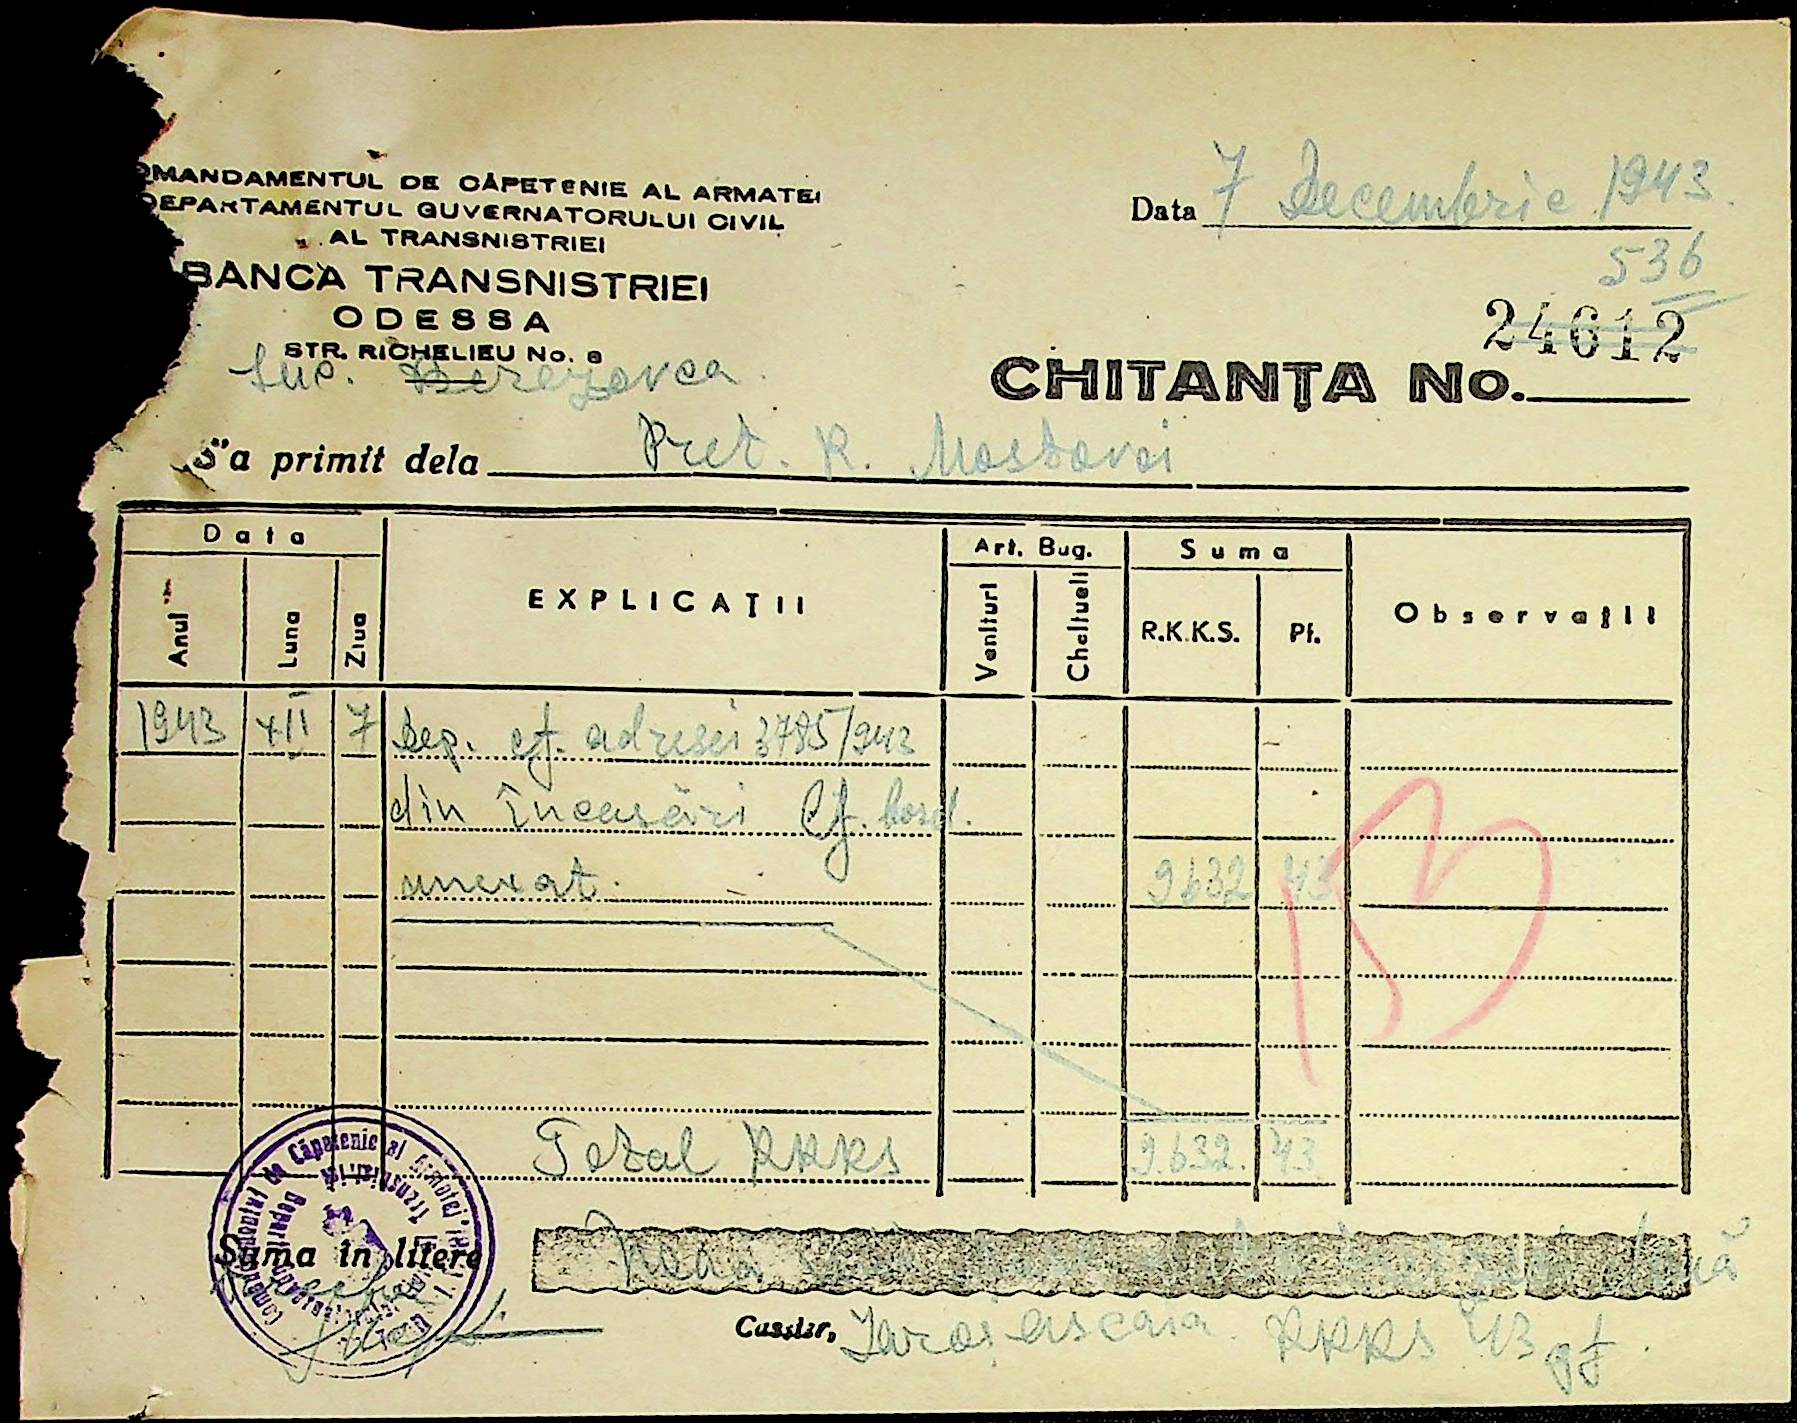 OMANDAMENTUL DE CĂPETENIE AL ARMATEI
DEPARTAMENTUL GUVERNATORULUI CIVIL
AL TRANSNISTRIEI
BANCA TRANSNISTRIEI
ODESSA
STR. RICHELIEU No. 8
Suc. Berezovca
Data 7 Decembrie 1943.
536
24612
CHITANȚA No.
S'a primit dela Pret. R. Mostovoi
Data
Anul Luna Ziua
EXPLICAȚII
Art. Bug.
Venituri Cheltueli
Suma
R.K.K.S. Pf.
Observații
1943 XII 7 Dep. cf. adresei 3785/943
din încasări cf. bord.
anexat. 9632 43
Total RKKS 9.632. 43
Comandamentul de Căpetenie al Armatei
Transnistriei
Suma în litere
Casier,
RKKS 43 pf.